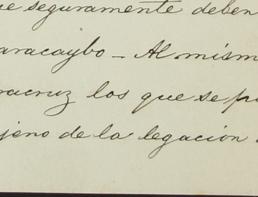 ue seguramente deben
aracaybo _ Al mism
racruz los que se p
jeno de la legacion